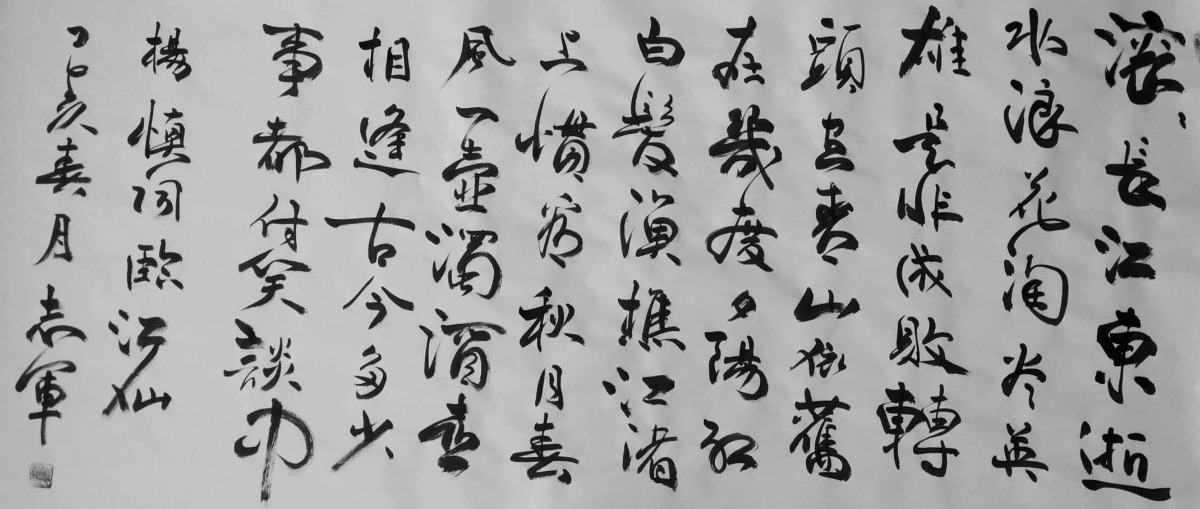 滚〻長江東逝
水浪花淘尽英
雄是非成敗轉
頭空青山依舊
在幾度夕陽紅
白髮漁樵江渚
上慣看秋月春
風一壺濁酒喜
相逢古今多少
事都付笑談中
楊慎词臨江仙
己亥春月志軍